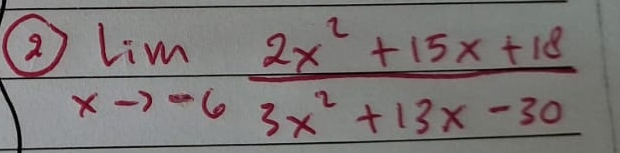 ② lim 2x² + 15x + 18
x → -6 3x² + 13x - 30